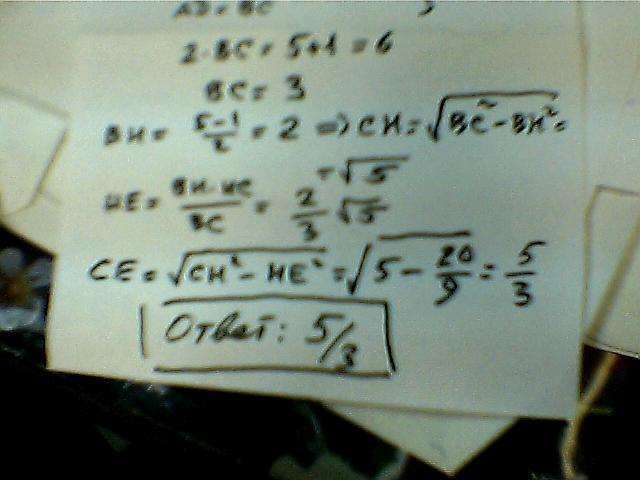 AD = BC
2·BC = 5+1 = 6
BC = 3
BH = \frac{5-1}{2} = 2 ⇒ CH = \sqrt{BC^2 - BH^2} =
= \sqrt{5}
HE = \frac{BH·HC}{BC} = \frac{2}{3}\sqrt{5}
CE = \sqrt{CH^2 - HE^2} = \sqrt{5 - \frac{20}{9}} = \frac{5}{3}
Ответ: 5/3